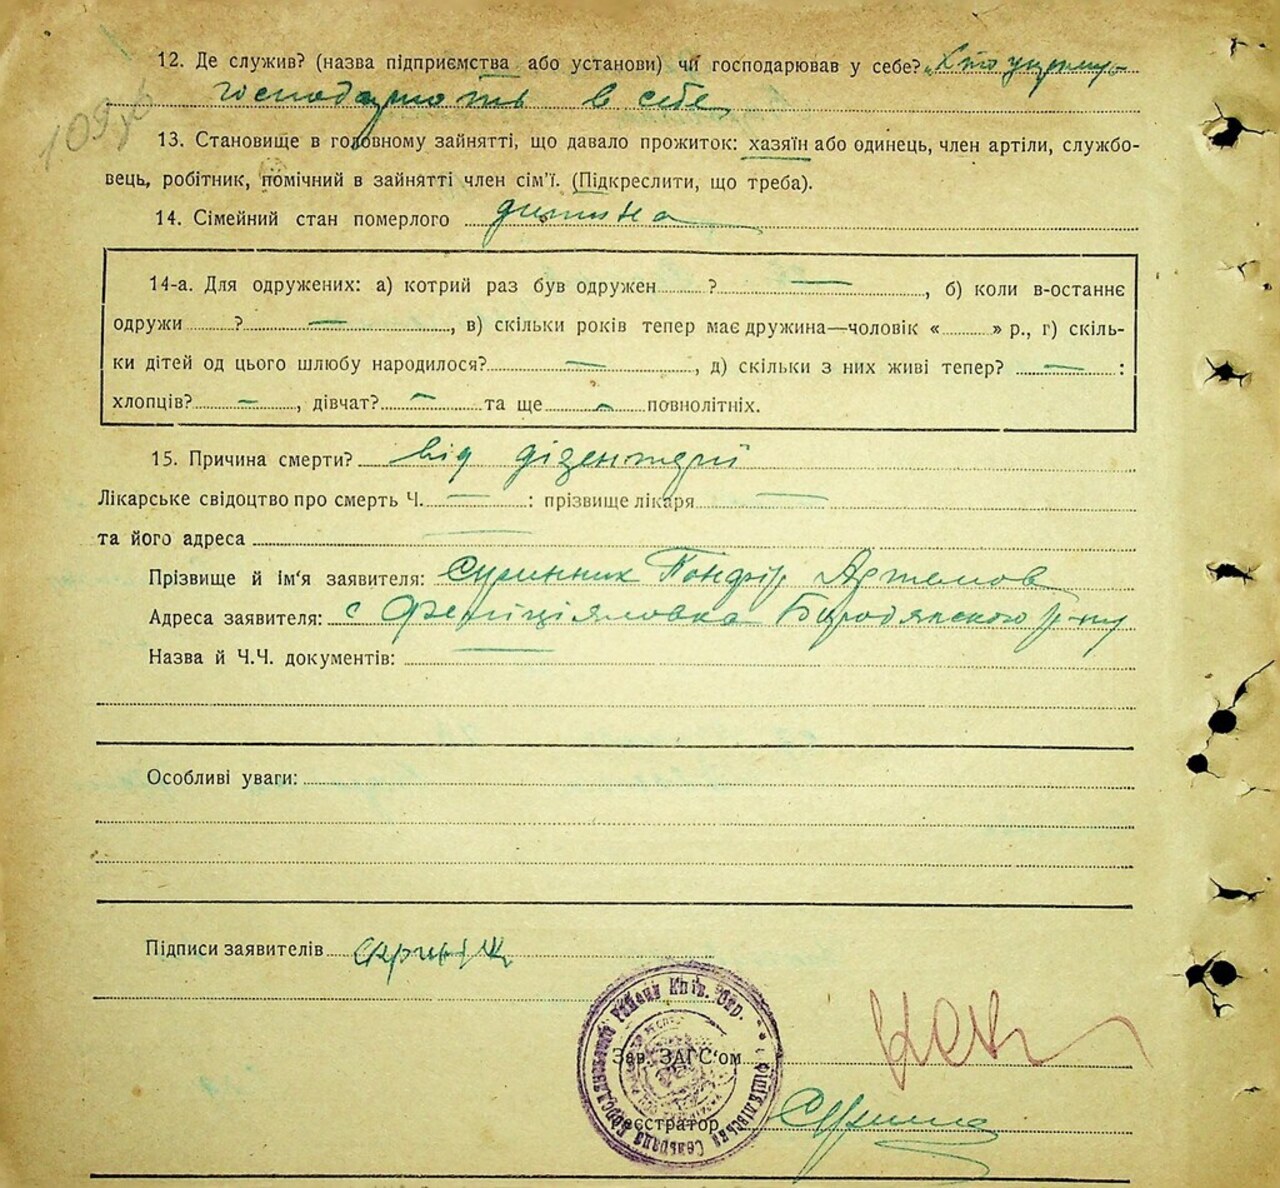 12. Де служив? (назва підприємства або установи) чи господарював у себе? „Хто утрим.-
господарюють в себе
13. Становище в головному зайнятті, що давало прожиток: хазяїн або одинець, член артіли, службо-
вець, робітник, помічний в зайнятті член сім'ї. (Підкреслити, що треба).
14. Сімейний стан померлого дитина
14-а. Для одружених: а) котрий раз був одружен ? —, б) коли в-останнє
одружи ? —, в) скільки років тепер має дружина—чоловік « » р., г) скіль-
ки дітей од цього шлюбу народилося? —, д) скільки з них живі тепер? — :
хлопців? —, дівчат? — та ще — повнолітніх.
15. Причина смерти? від дізентерії
Лікарське свідоцтво про смерть Ч. — : прізвище лікаря —
та його адреса —
Прізвище й ім'я заявителя: Скринник Артемов
Адреса заявителя: с Феліціяловка Бородянского р-ну
Назва й Ч.Ч. документів: —
Особливі уваги:
Підписи заявителів
Зав. ЗАГС'ом
еєстратор
Району Київ. Окр.
Сельрада